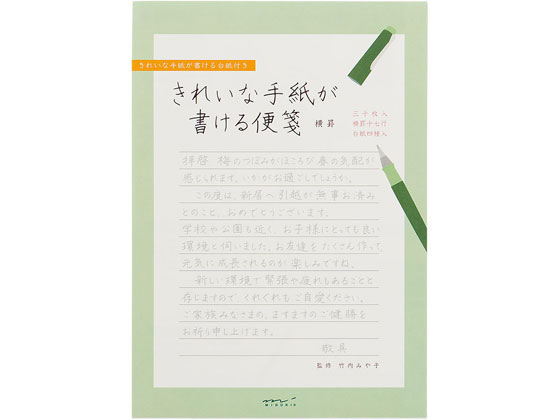 きれいな手紙が書ける台紙付き
きれいな手紙が
書ける便箋 横罫
三十枚入
横罫十七行
台紙四種入
拝啓 梅のつぼみがほころび、春の気配が
感じられます。いかがお過ごしでしょうか。
この度は、新居へ引越が無事お済み
とのこと、おめでとうございます。
学校や公園も近く、お子様にとっても良い
環境と伺いました。お友達をたくさん作って
元気に成長されるのが楽しみですね。
新しい環境で緊張や疲れもあることと
存じますので、くれぐれもご自愛ください。
ご家族みなさまの、ますますのご健勝を
お祈り申し上げます。
敬具
監修 竹内みや子
MIDORI